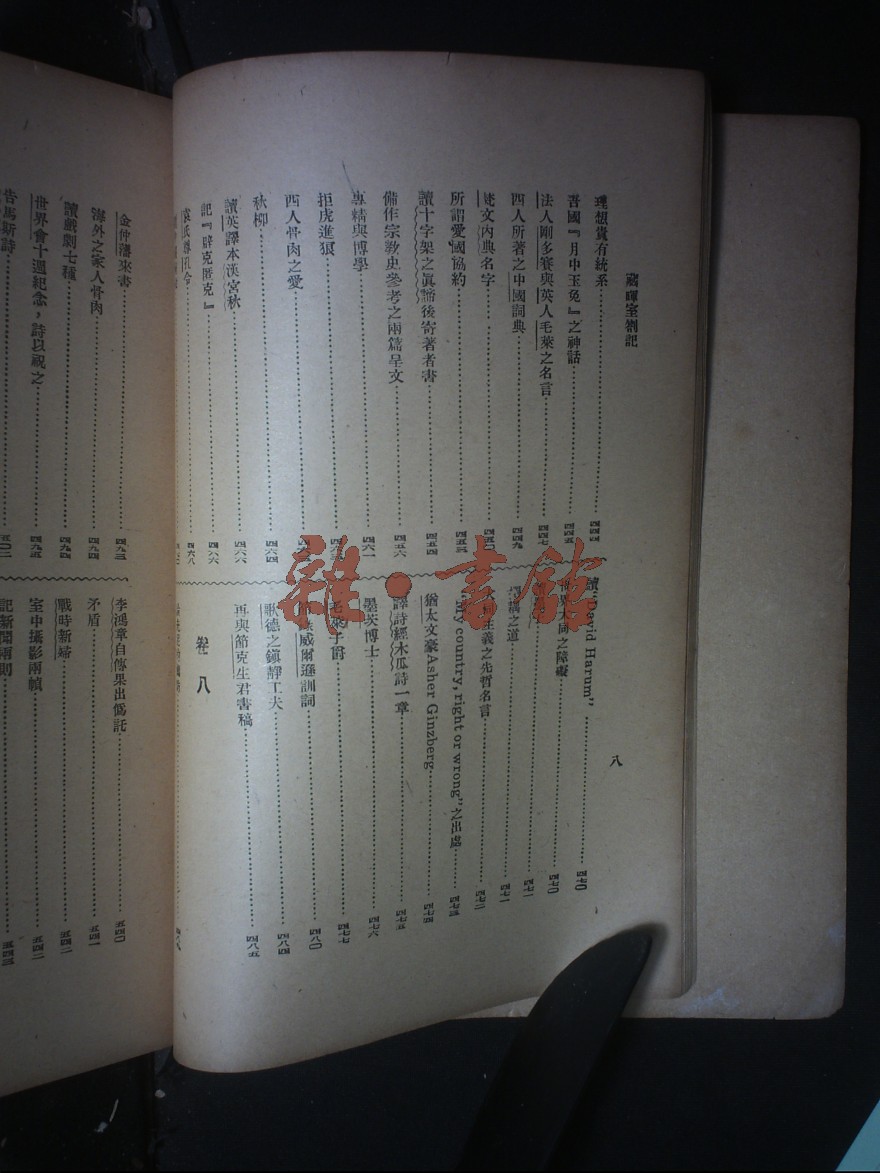 藏暉室劄記
八
理想貴有統系 四四五
吾國『月中玉兔』之神話 四四五
法人剛多賽與英人毛萊之名言 四四七
西人所著之中國詞典 四四九
梵文內典名字 四五〇
所謂愛國協約 四五三
讀十字架之眞諦後寄著者書 四五四
備作宗敎史參考之兩篇呈文 四五六
專精與博學 四六一
拒虎進狼
西人骨肉之愛
秋柳 四六四
讀英譯本漢宮秋 四六六
記『辟克匿克』 四六六
袁氏尊孔令 四六八
讀“David Harum” 四七〇
世界大同之障礙 四七〇
四七一
擇鄰之道 四七一
主義之先哲名言 四七二
“My country, right or wrong”之出處 四七三
猶太文豪Asher Ginzberg 四七四
譯詩經木瓜詩一章 四七五
墨茨博士 四七六
毛萊子爵 四七七
威爾遜訓詞 四八〇
歌德之鎭靜工夫 四八四
再與節克生君書稿 四八五
卷八
金仲藩來書 四九三
海外之家人骨肉 四九四
讀戲劇七種 四九四
世界會十週紀念，詩以祝之 四九五
告馬斯詩 五〇二
李鴻章自傳果出僞託 五四〇
矛盾 五四一
戰時新婦 五四二
室中攝影兩幀 五四二
記新聞兩則 五四三
雜·書館